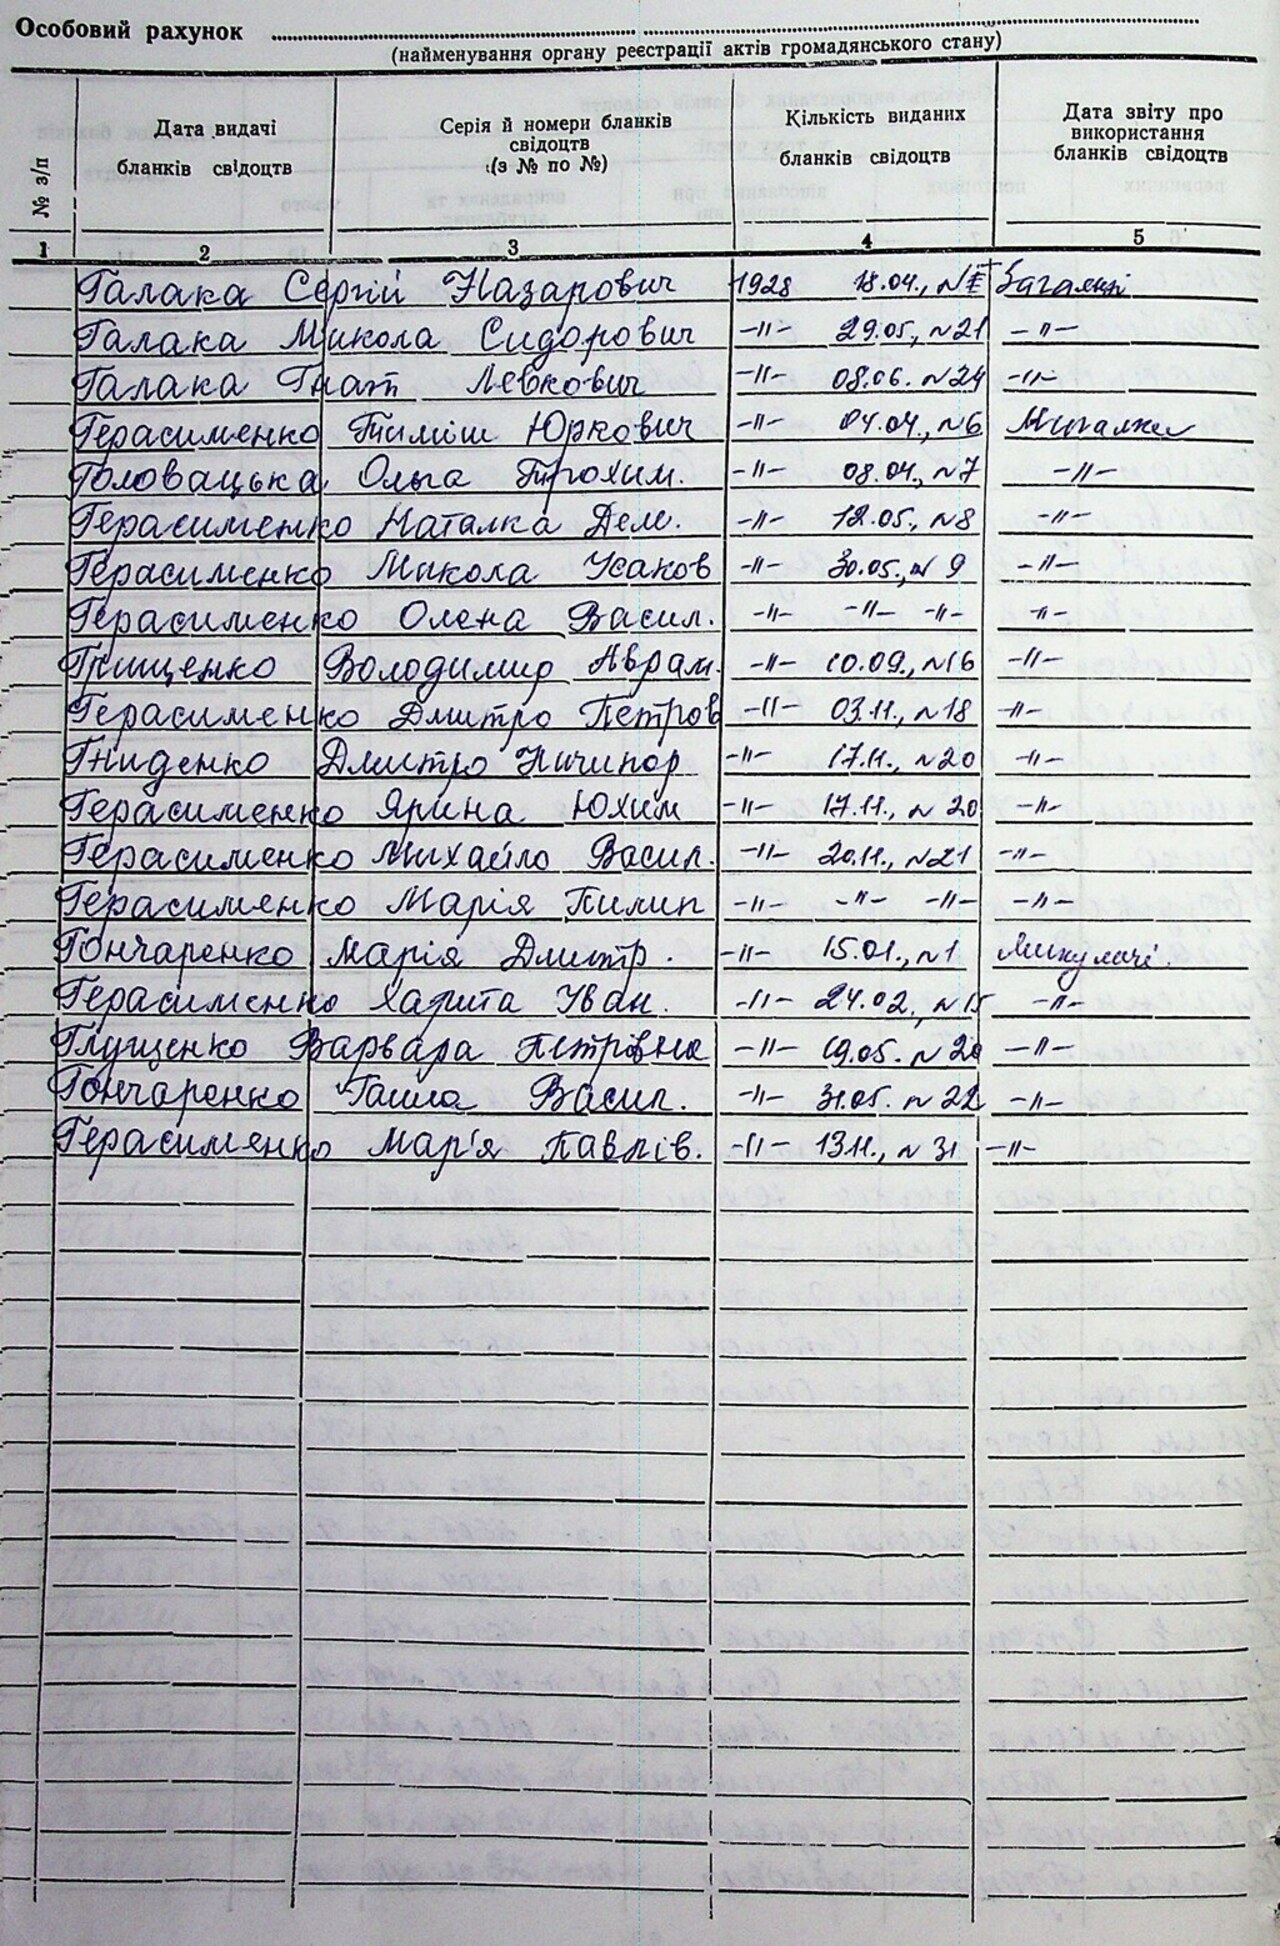 Особовий рахунок
(найменування органу реєстрації актів громадянського стану)
№ з/п
Дата видачі
бланків свідоцтв
Серія й номери бланків
свідоцтв
(з № по №)
Кількість виданих
бланків свідоцтв
Дата звіту про
використання
бланків свідоцтв
1 2 3 4 5
Галака Сергій Назарович 1928 18.04., N
Галака Микола Сидорович -"- 29.05., N21 -"-
Галака Гнат Левкович -"- 08.06. N24 -"-
Герасименко Тиміш Юркович -"- 04.04., N6
Головацька Ольга Трохим. -"- 08.04., N7 -"-
Герасименко Наталка Дем. -"- 12.05., N8 -"-
Герасименко Микола Усаков -"- 30.05., N 9 -"-
Герасименко Олена Васил. -"- -"- -"- -"-
Грищенко Володимир Аврам. -"- 10.09., N16 -"-
Герасименко Дмитро Петров -"- 03.11., N18 -"-
Гниденко Дмитро Ничипор -"- 17.11., N20 -"-
Герасименко Ярина Юхим -"- 17.11., N 20 -"-
Герасименко Михайло Васил. -"- 20.11., N21 -"-
Герасименко Марія Пилип -"- -"- -"- -"-
Гончаренко Марія Дмитр. -"- 15.01., N1
Герасименко Харита Іван. -"- 24.02., N15 -"-
Глущенко Варвара Петрівна -"- 19.05. N 20 -"-
Гончаренко Ганна Васил. -"- 31.05. N 22 -"-
Герасименко Мар'я Павлів. -"- 13.11., N 31 -"-